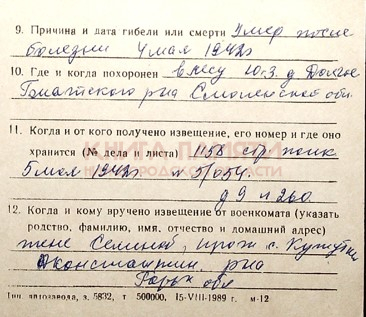 9. Причина и дата гибели или смерти Умер после
болезни 4 мая 1942г
10. Где и когда похоронен в лесу ю.з. д Долгое
р-на Смоленской обл.
КНИГА ПАМЯТИ
11. Когда и от кого получено извещение, его номер и где оно
хранится (№ дела и листа) 1158 стр полк
5 мая 1942г № 5/054.
д 9 л 260
12. Когда и кому вручено извещение от военкомата (указать
родство, фамилию, имя, отчество и домашний адрес)
жене Семиной, прож с.
р-на
Горьк обл
Тип. автозавода, з. 5832, т 500000, 15-VIII-1989 г. м-12